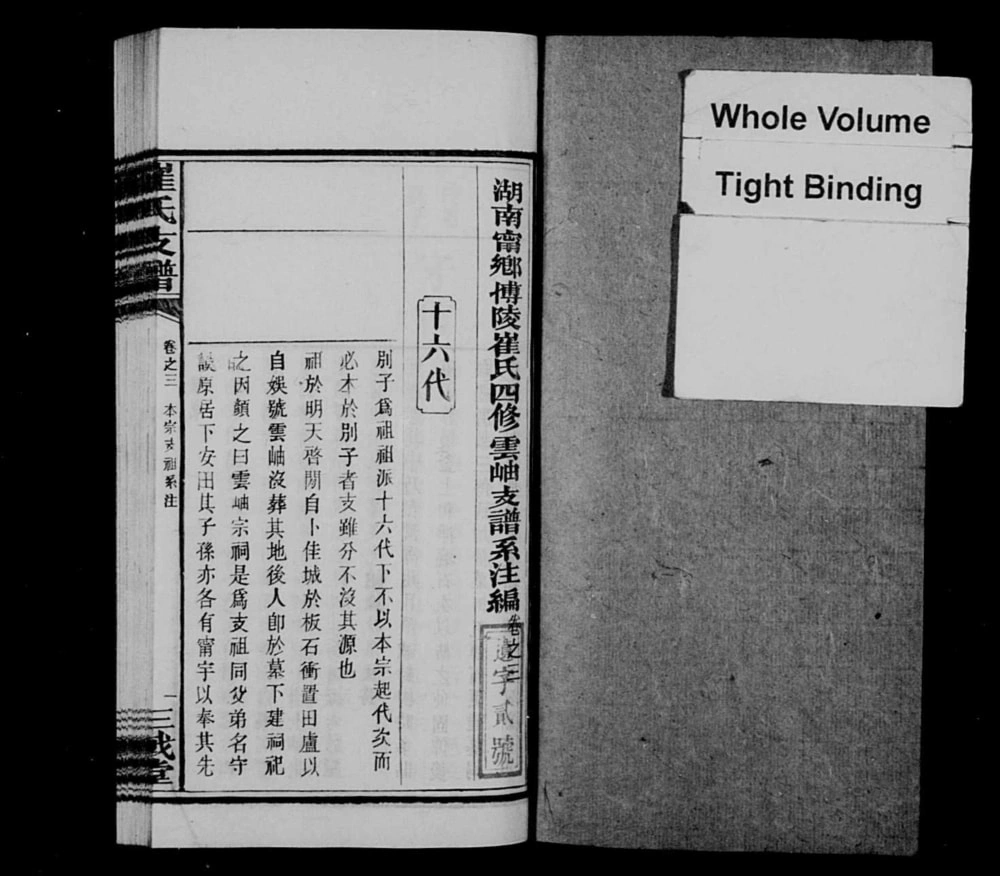 Whole Volume
Tight Binding
湖南甯鄉博陵崔氏四修雲岫支譜系注編 卷之三
字貳號
十六代
別子爲祖祖派十六代下不以本宗起代次而
必本於別子者支雖分不沒其源也
祖於明天啓間自卜佳城於板石衝置田廬以
自娛號雲岫沒葬其地後人卽於墓下建祠祀
之因顏之曰雲岫宗祠是爲支祖同父弟名守
原居下安田其子孫亦各有甯宇以奉其先
崔氏支譜
卷之三 本宗支祖系注
一
三戒堂